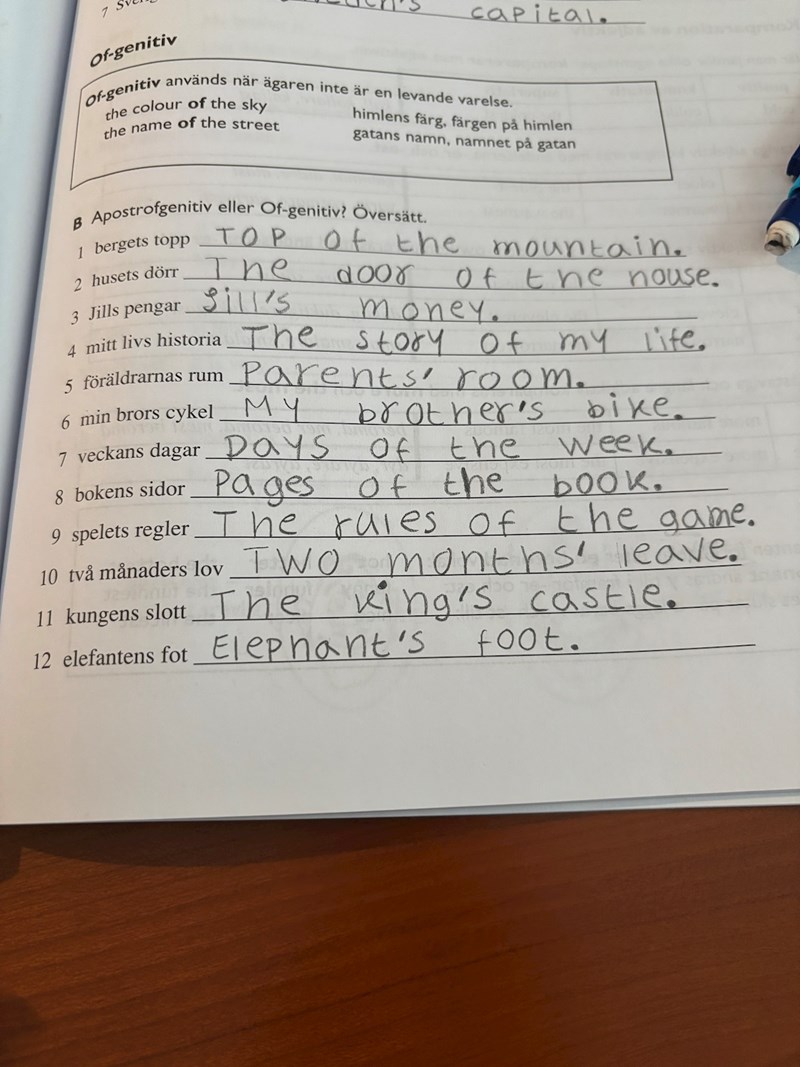 capital.
Of-genitiv
Of-genitiv används när ägaren inte är en levande varelse.
the colour of the sky himlens färg, färgen på himlen
the name of the street gatans namn, namnet på gatan
B Apostrofgenitiv eller Of-genitiv? Översätt.
1 bergets topp Top of the mountain.
2 husets dörr The door of the house.
3 Jills pengar Jill's money.
4 mitt livs historia The story of my life.
5 föräldrarnas rum Parents' room.
6 min brors cykel My brother's bike.
7 veckans dagar Days of the week.
8 bokens sidor Pages of the book.
9 spelets regler The rules of the game.
10 två månaders lov Two months' leave.
11 kungens slott The king's castle.
12 elefantens fot Elephant's foot.